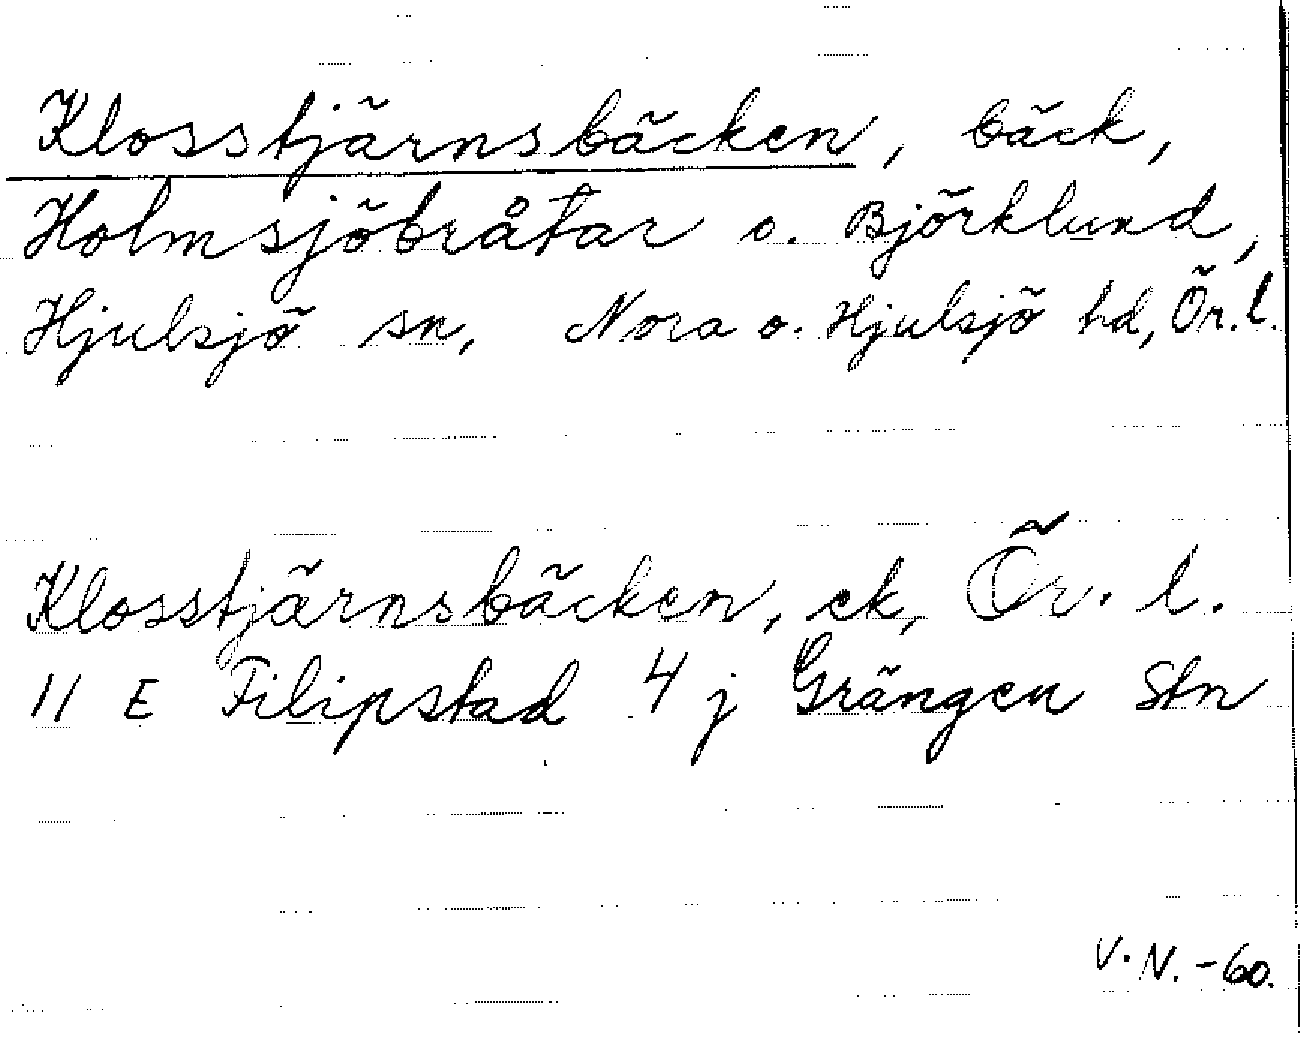 Klosstjärnsbäcken, bäck,
Holmsjöbråtar o. Björklund,
Hjulsjö sn, Nora o. Hjulsjö hd, Ör. l.
Klosstjärnsbäcken, ek, Ör. l.
11 E Filipstad 4 j Grängen Stn
V. N. -60.